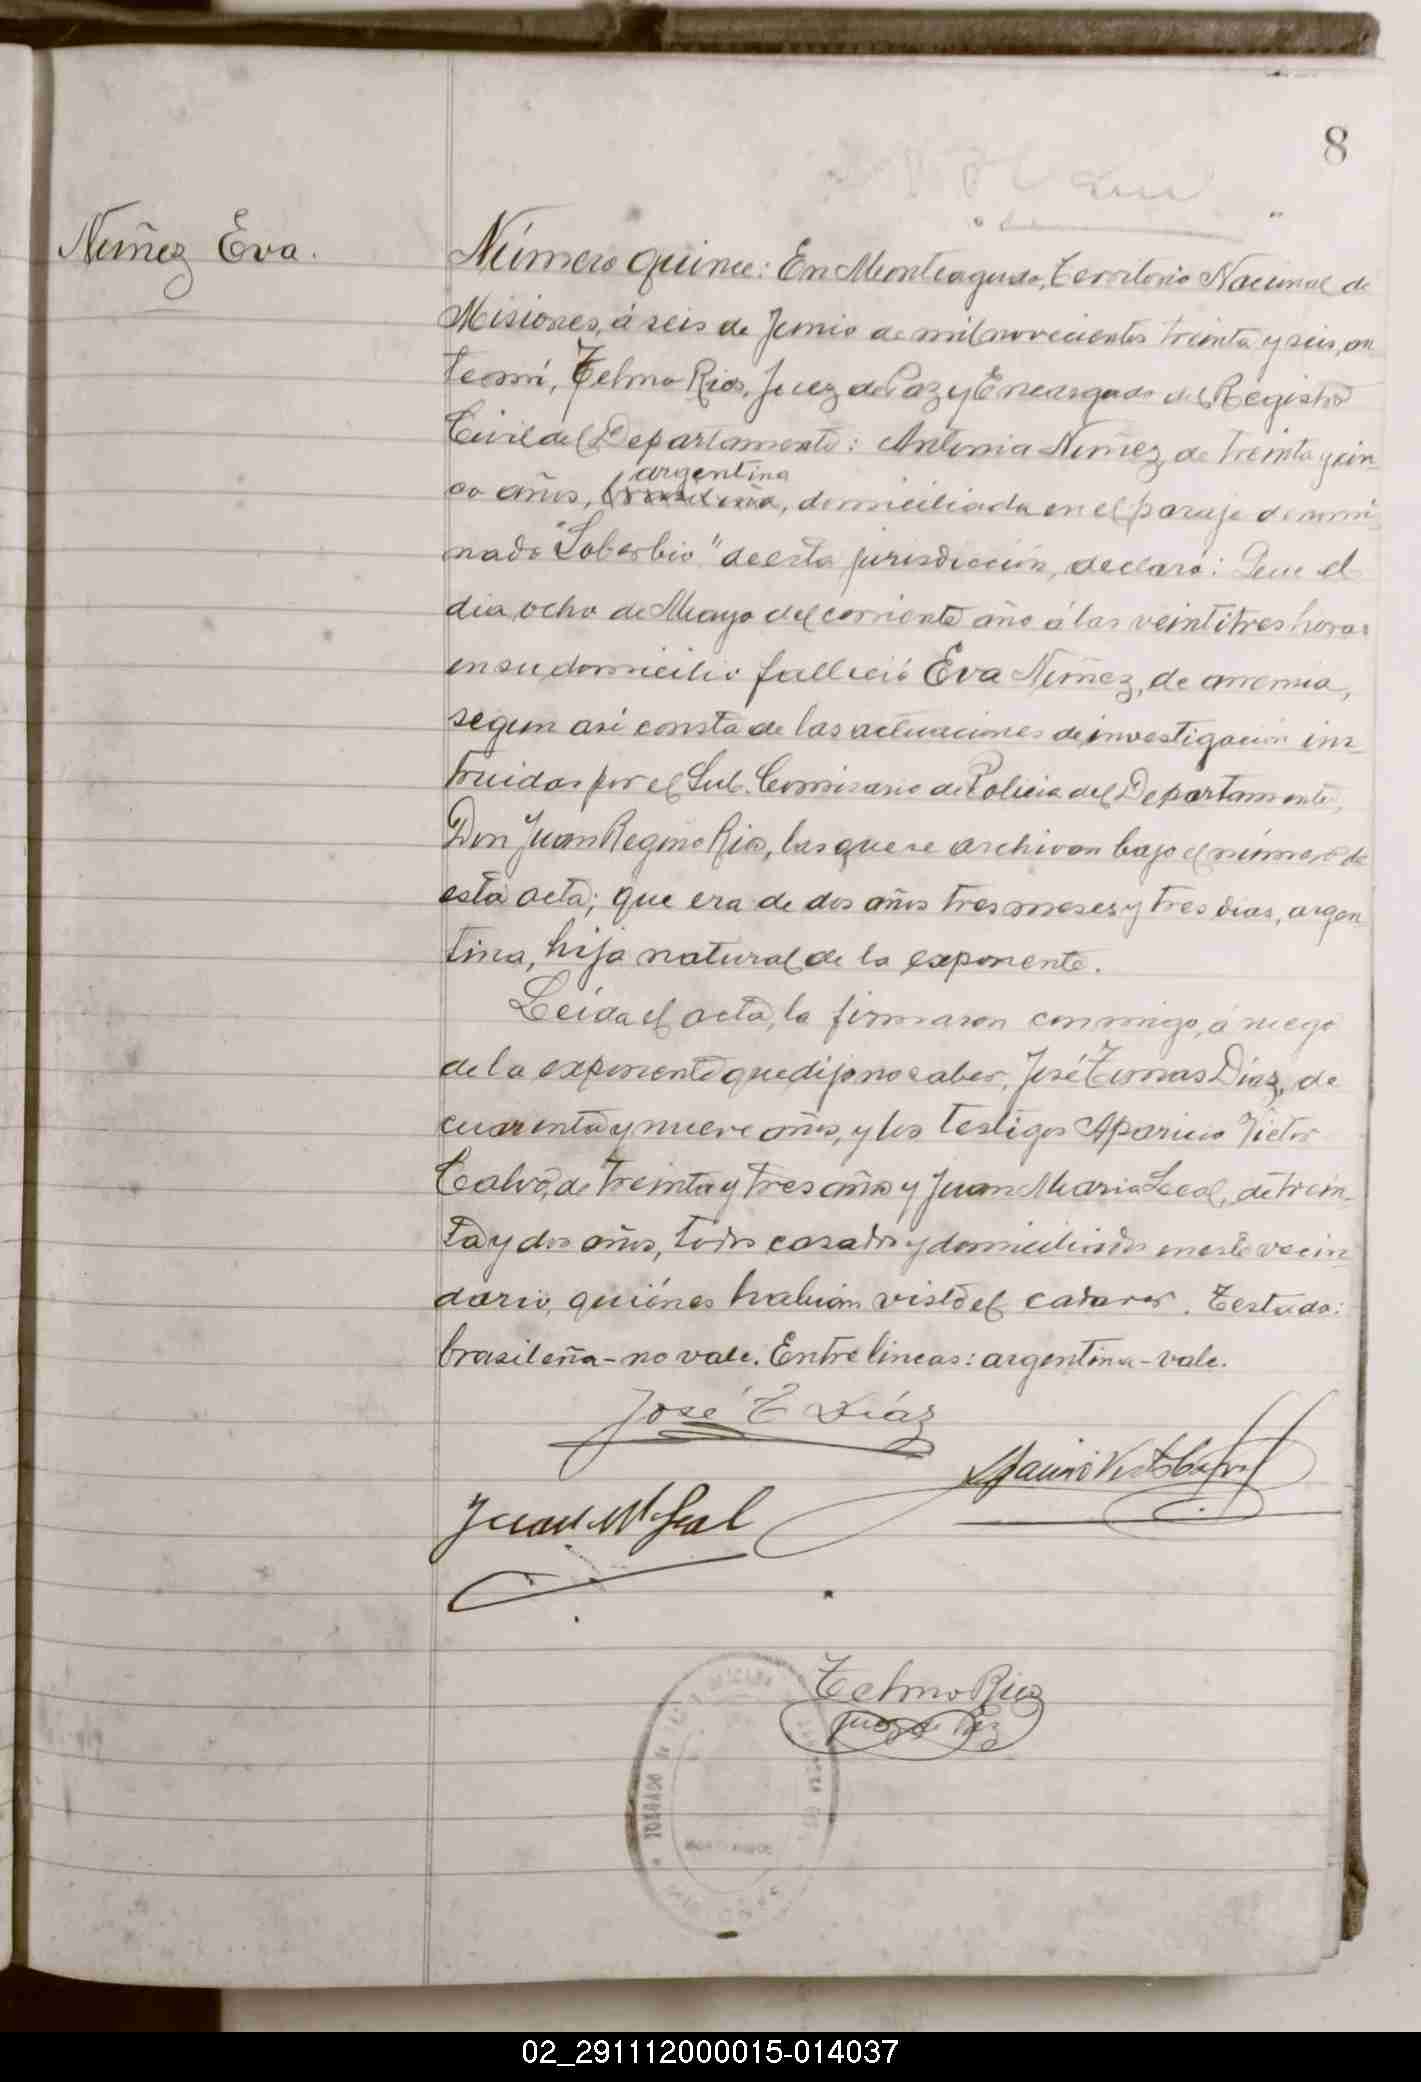 8
Nuñez Eva.
Número quince: En Monteagudo, Territorio Nacional de
Misiones, á seis de Junio de mil novecientos treinta y seis, an
te mí, Telmo Rios, Juez de Paz y Encargado del Registro
Civil del Departamento: Antonia Nuñez, de treinta y cin-
argentina
co años, brasileña, domiciliada en el paraje denomi-
nado "Soberbio" de esta jurisdicción, declaró: Que el
dia ocho de Mayo del corriente año á las veintitres horas
en su domicilio falleció Eva Nuñez, de anemia,
segun asi consta de las actuaciones de investigación ins-
truidas por el Sub. Comisario de Policia del Departamento,
Don Juan Regino Rios, las que se archivan bajo el número de
esta acta; que era de dos años tres meses y tres dias, argen-
tina, hija natural de la exponente.
Leida el acta, la firmaron conmigo, á ruego
de la exponente que dijo no saber, José Tomas Díaz, de
cuarenta y nueve años, y los testigos Aparicio Victor
Calvo, de treinta y tres años y Juan Maria Leal, de trein-
ta y dos años, todos casados y domiciliados en este vecin-
dario, quiénes habian visto el cadaver. Testado:
brasileña-no vale. Entre lineas: argentina-vale.
José T Díaz
Juan M Leal
Telmo Rios
Juez de Paz
JUZGADO DE
02_291112000015-014037